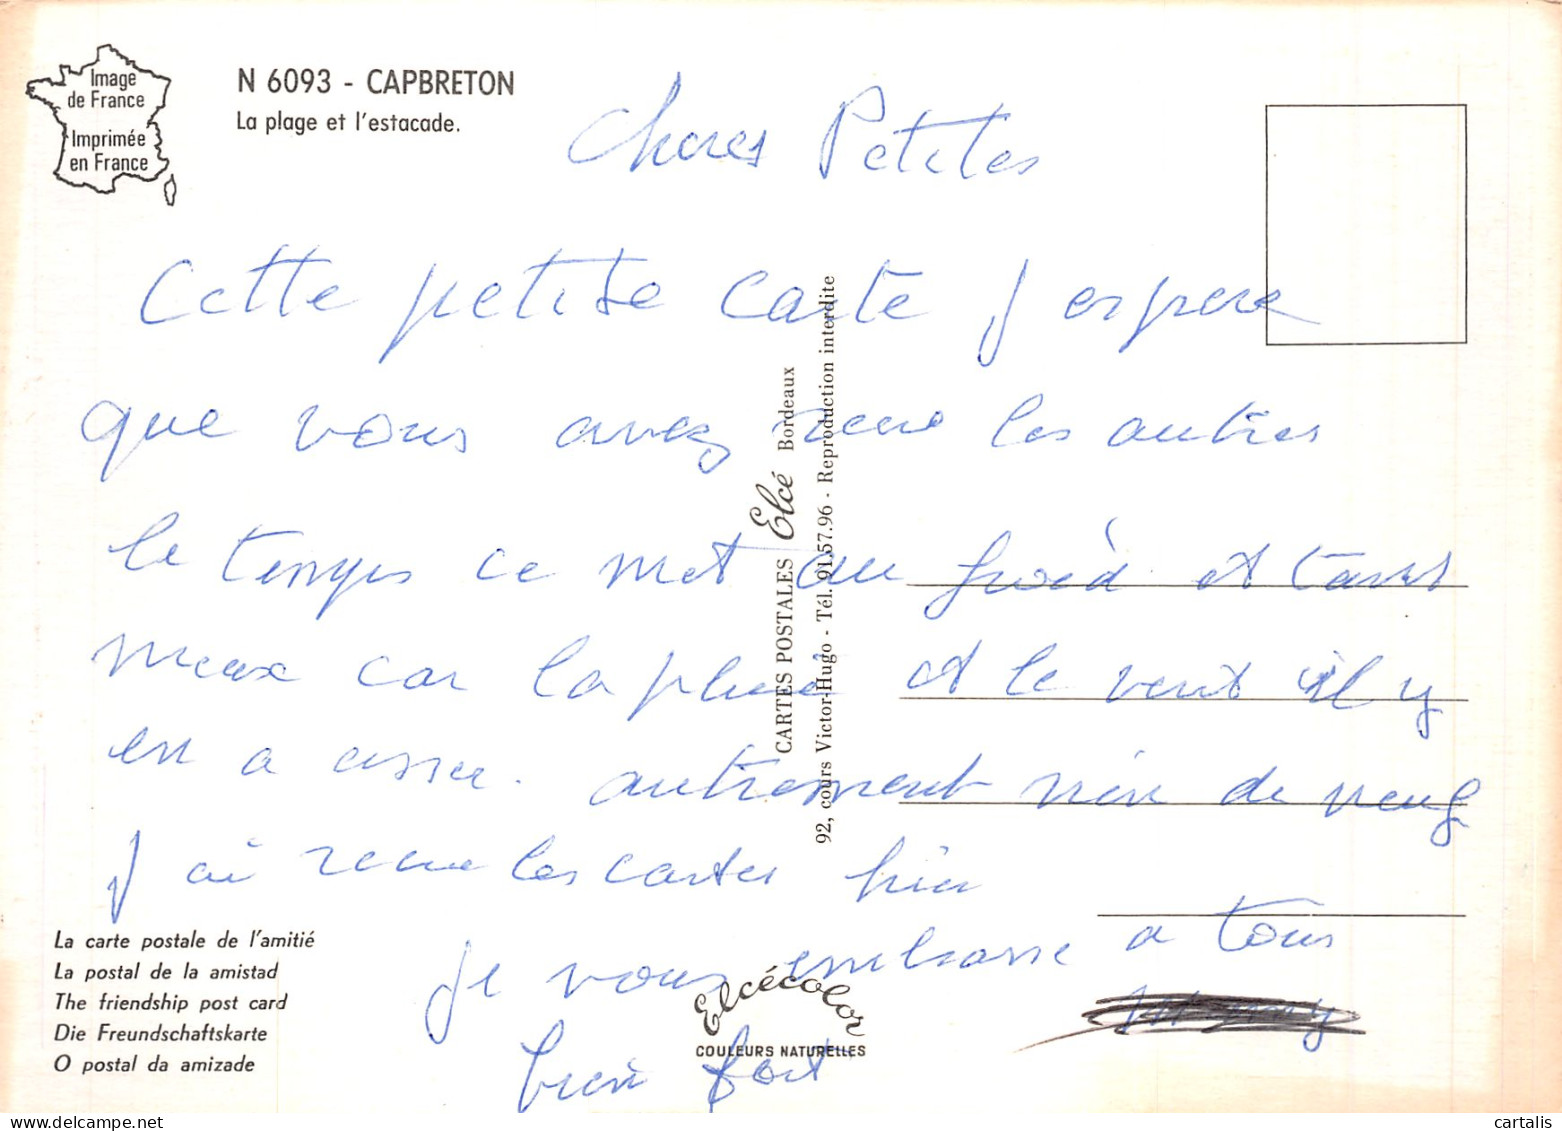 Image
de France
Imprimée
en France
N 6093 - CAPBRETON
La plage et l'estacade.
Cheres Petites
Cette petite carte j espere
que vous avez recue les autres
le temps ce met au froid et tant
mieux car la pluie et le vent il y
en a assez. autrement rien de neuf
j ai recue les cartes hier
je vous embrasse a tous
bien fort
CARTES POSTALES Elcé Bordeaux
92, cours Victor-Hugo - Tél. 91.57.96 - Reproduction interdite
La carte postale de l'amitié
La postal de la amistad
The friendship post card
Die Freundschaftskarte
O postal da amizade
Elcécolor
COULEURS NATURELLES
cartalis